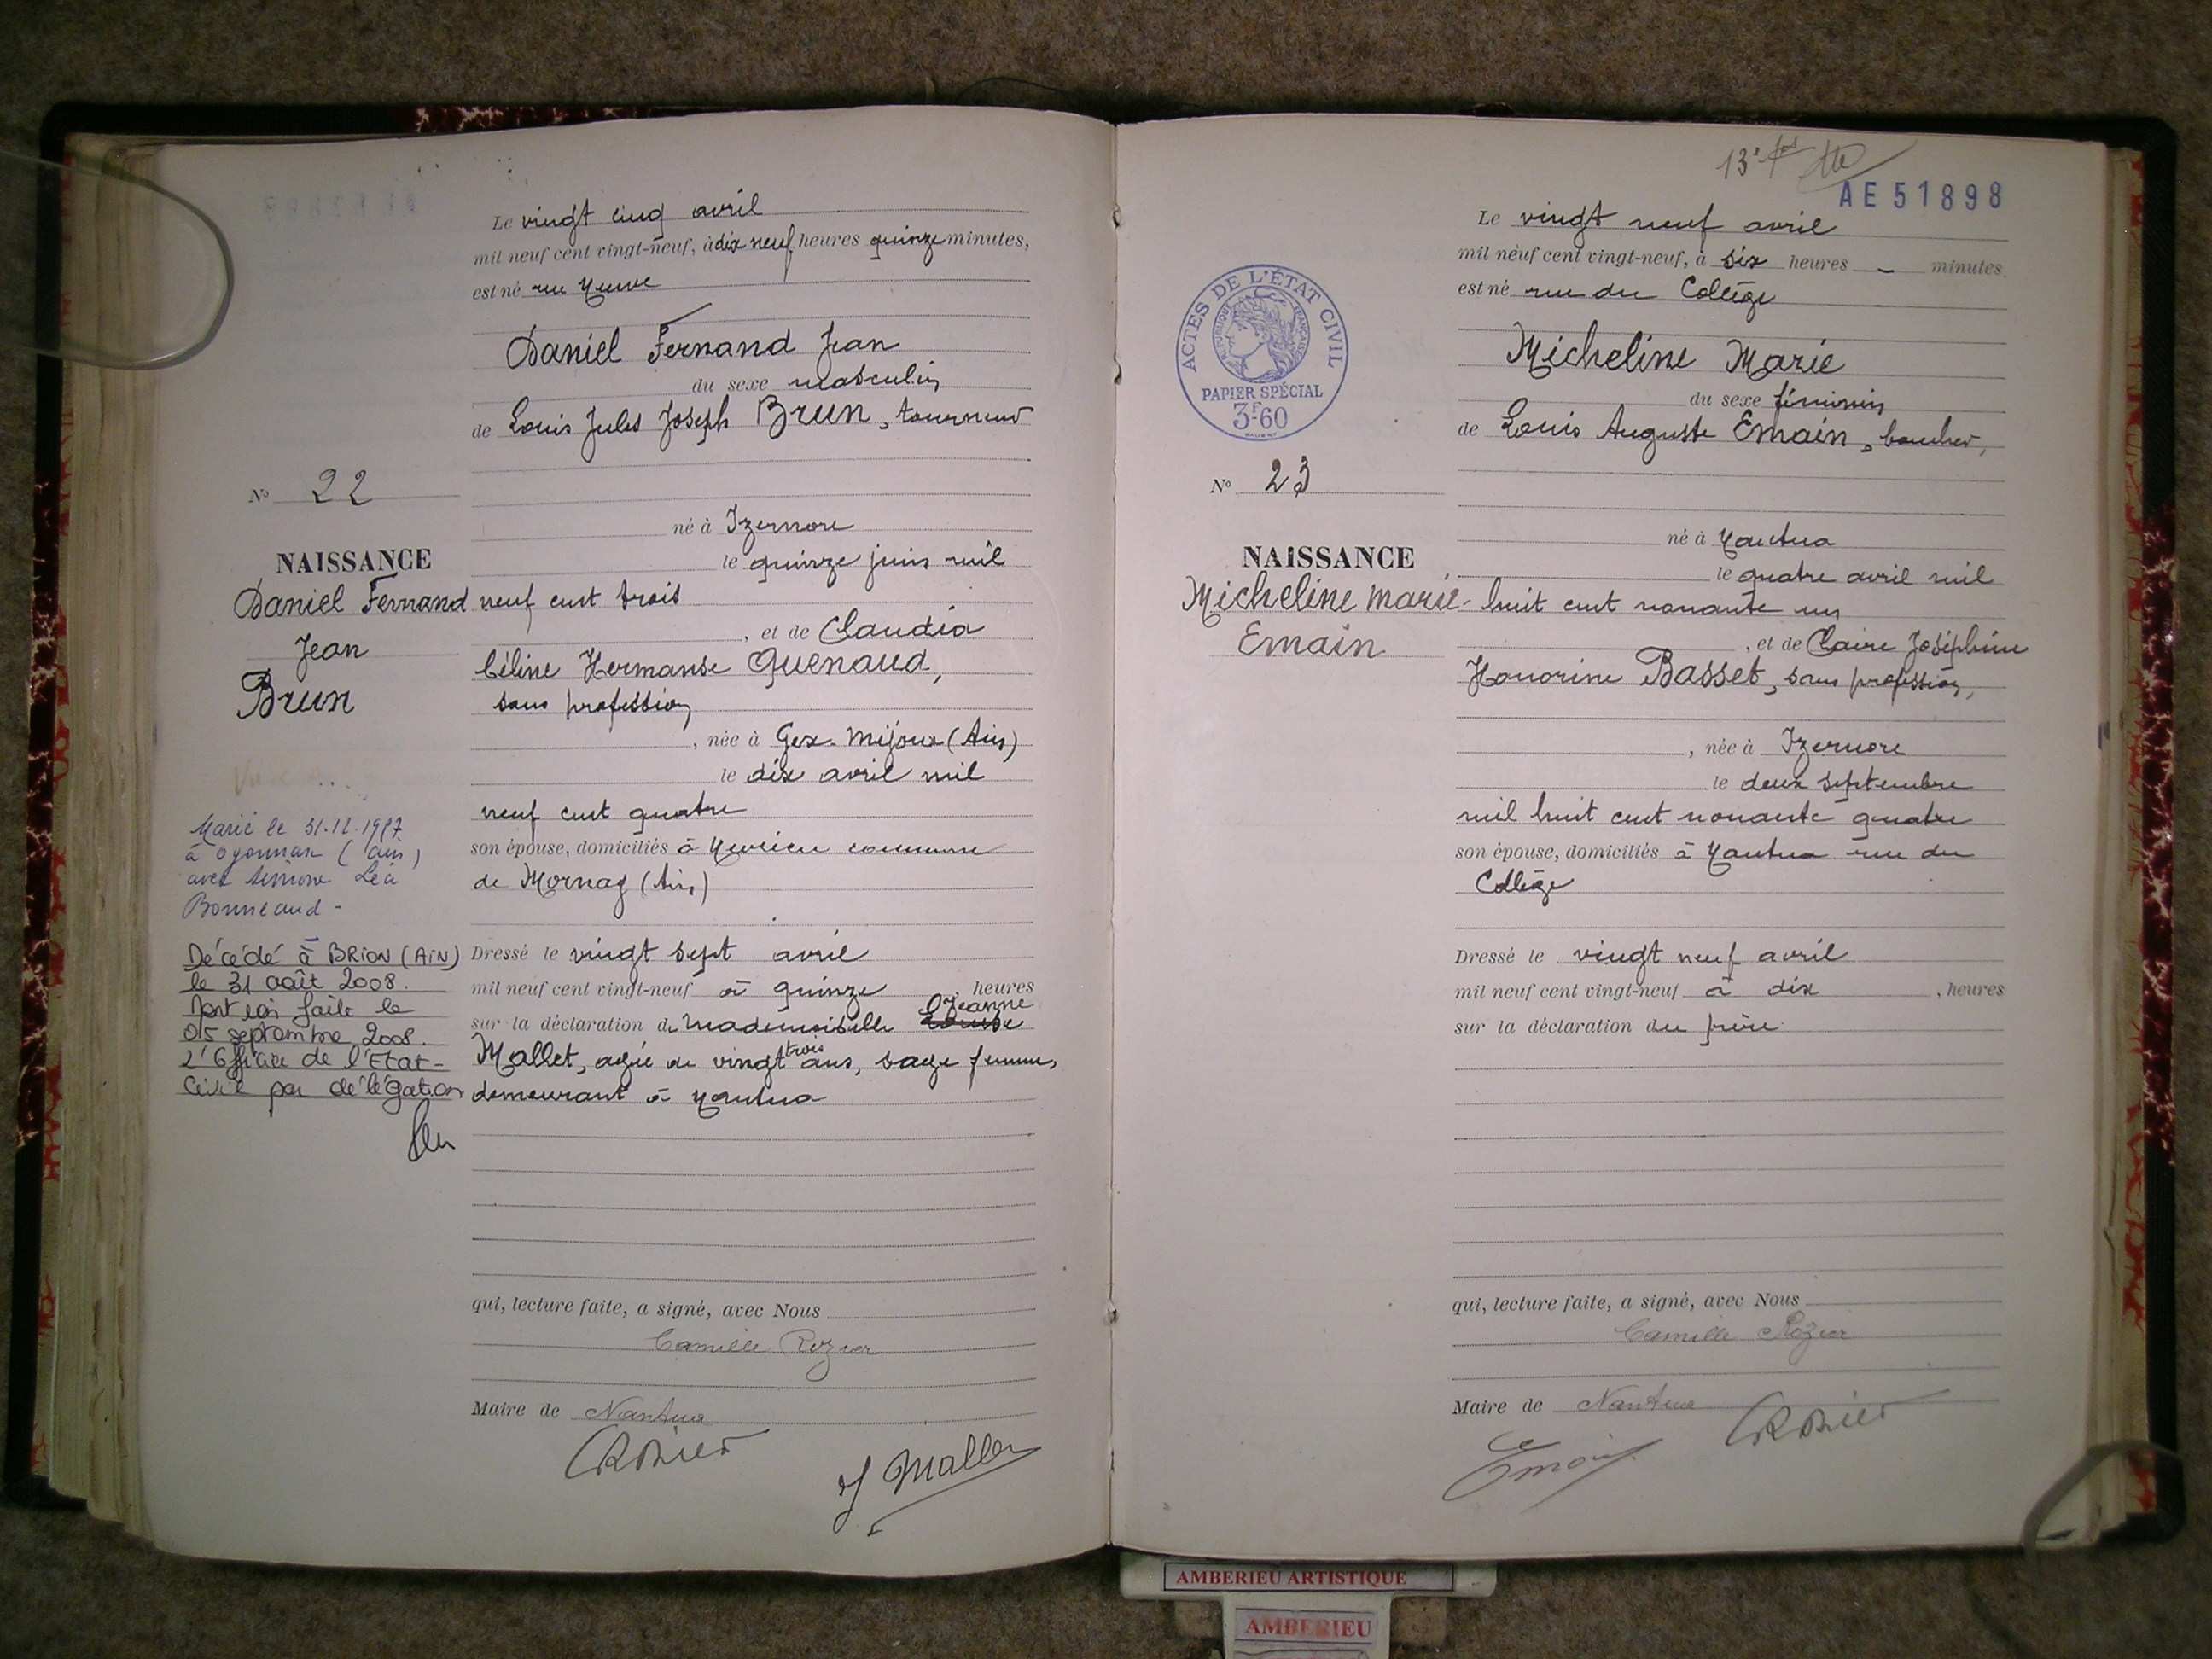 Le vingt cinq avril
mil neuf cent vingt-neuf, à dix neuf heures quinze minutes,
est né rue Neuve
Daniel Fernand Jean
du sexe masculin
de Louis Jules Joseph Brun, tourneur
N° 22
né à Izernore
NAISSANCE
le quinze juin mil
Daniel Fernand
Jean
Brun
neuf cent trois
, et de Claudia
Céline Hermanse Quenaud,
sans profession
, née à Gex-Mijoux (Ain)
le dix avril mil
neuf cent quatre
son épouse, domiciliés à commune
de Mornay (Ain)
Marié le 31.12.
à Oyonnax (Ain)
avec Simone Léa
Bonneaud -
Décédé à BRION (AIN)
le 31 août 2008.
faite le
05 septembre 2008.
L'Officier de l'Etat-
Civil par délégation
Dressé le vingt sept avril
mil neuf cent vingt-neuf à quinze , heures
sur la déclaration de Mademoiselle Jeanne
Mallet, agée de vingt trois ans, sage femme,
demeurant à Nantua
qui, lecture faite, a signé, avec Nous
Camille Rozier
Maire de Nantua
CRozier
J Mallet
AE51898
Le vingt neuf avril
mil neuf cent vingt-neuf, à six heures - minutes
est né rue du Collège
ACTES DE L'ÉTAT CIVIL
RÉPUBLIQUE FRANÇAISE
PAPIER SPÉCIAL
3F60
Micheline Marie
du sexe féminin
de Louis Auguste Emain, boucher,
N° 23
né à Nantua
NAISSANCE
le quatre avril mil
Micheline Marie
Emain
huit cent nonante un
, et de Claire Joséphine
Honorine Basset, sans profession,
, née à Izernore
le deux septembre
mil huit cent nonante quatre
son épouse, domiciliés à Nantua rue du
Collège
Dressé le vingt neuf avril
mil neuf cent vingt-neuf à dix , heures
sur la déclaration du père
qui, lecture faite, a signé, avec Nous
Camille Rozier
Maire de Nantua
Emain
CRozier
AMBERIEU ARTISTIQUE
AMBERIEU